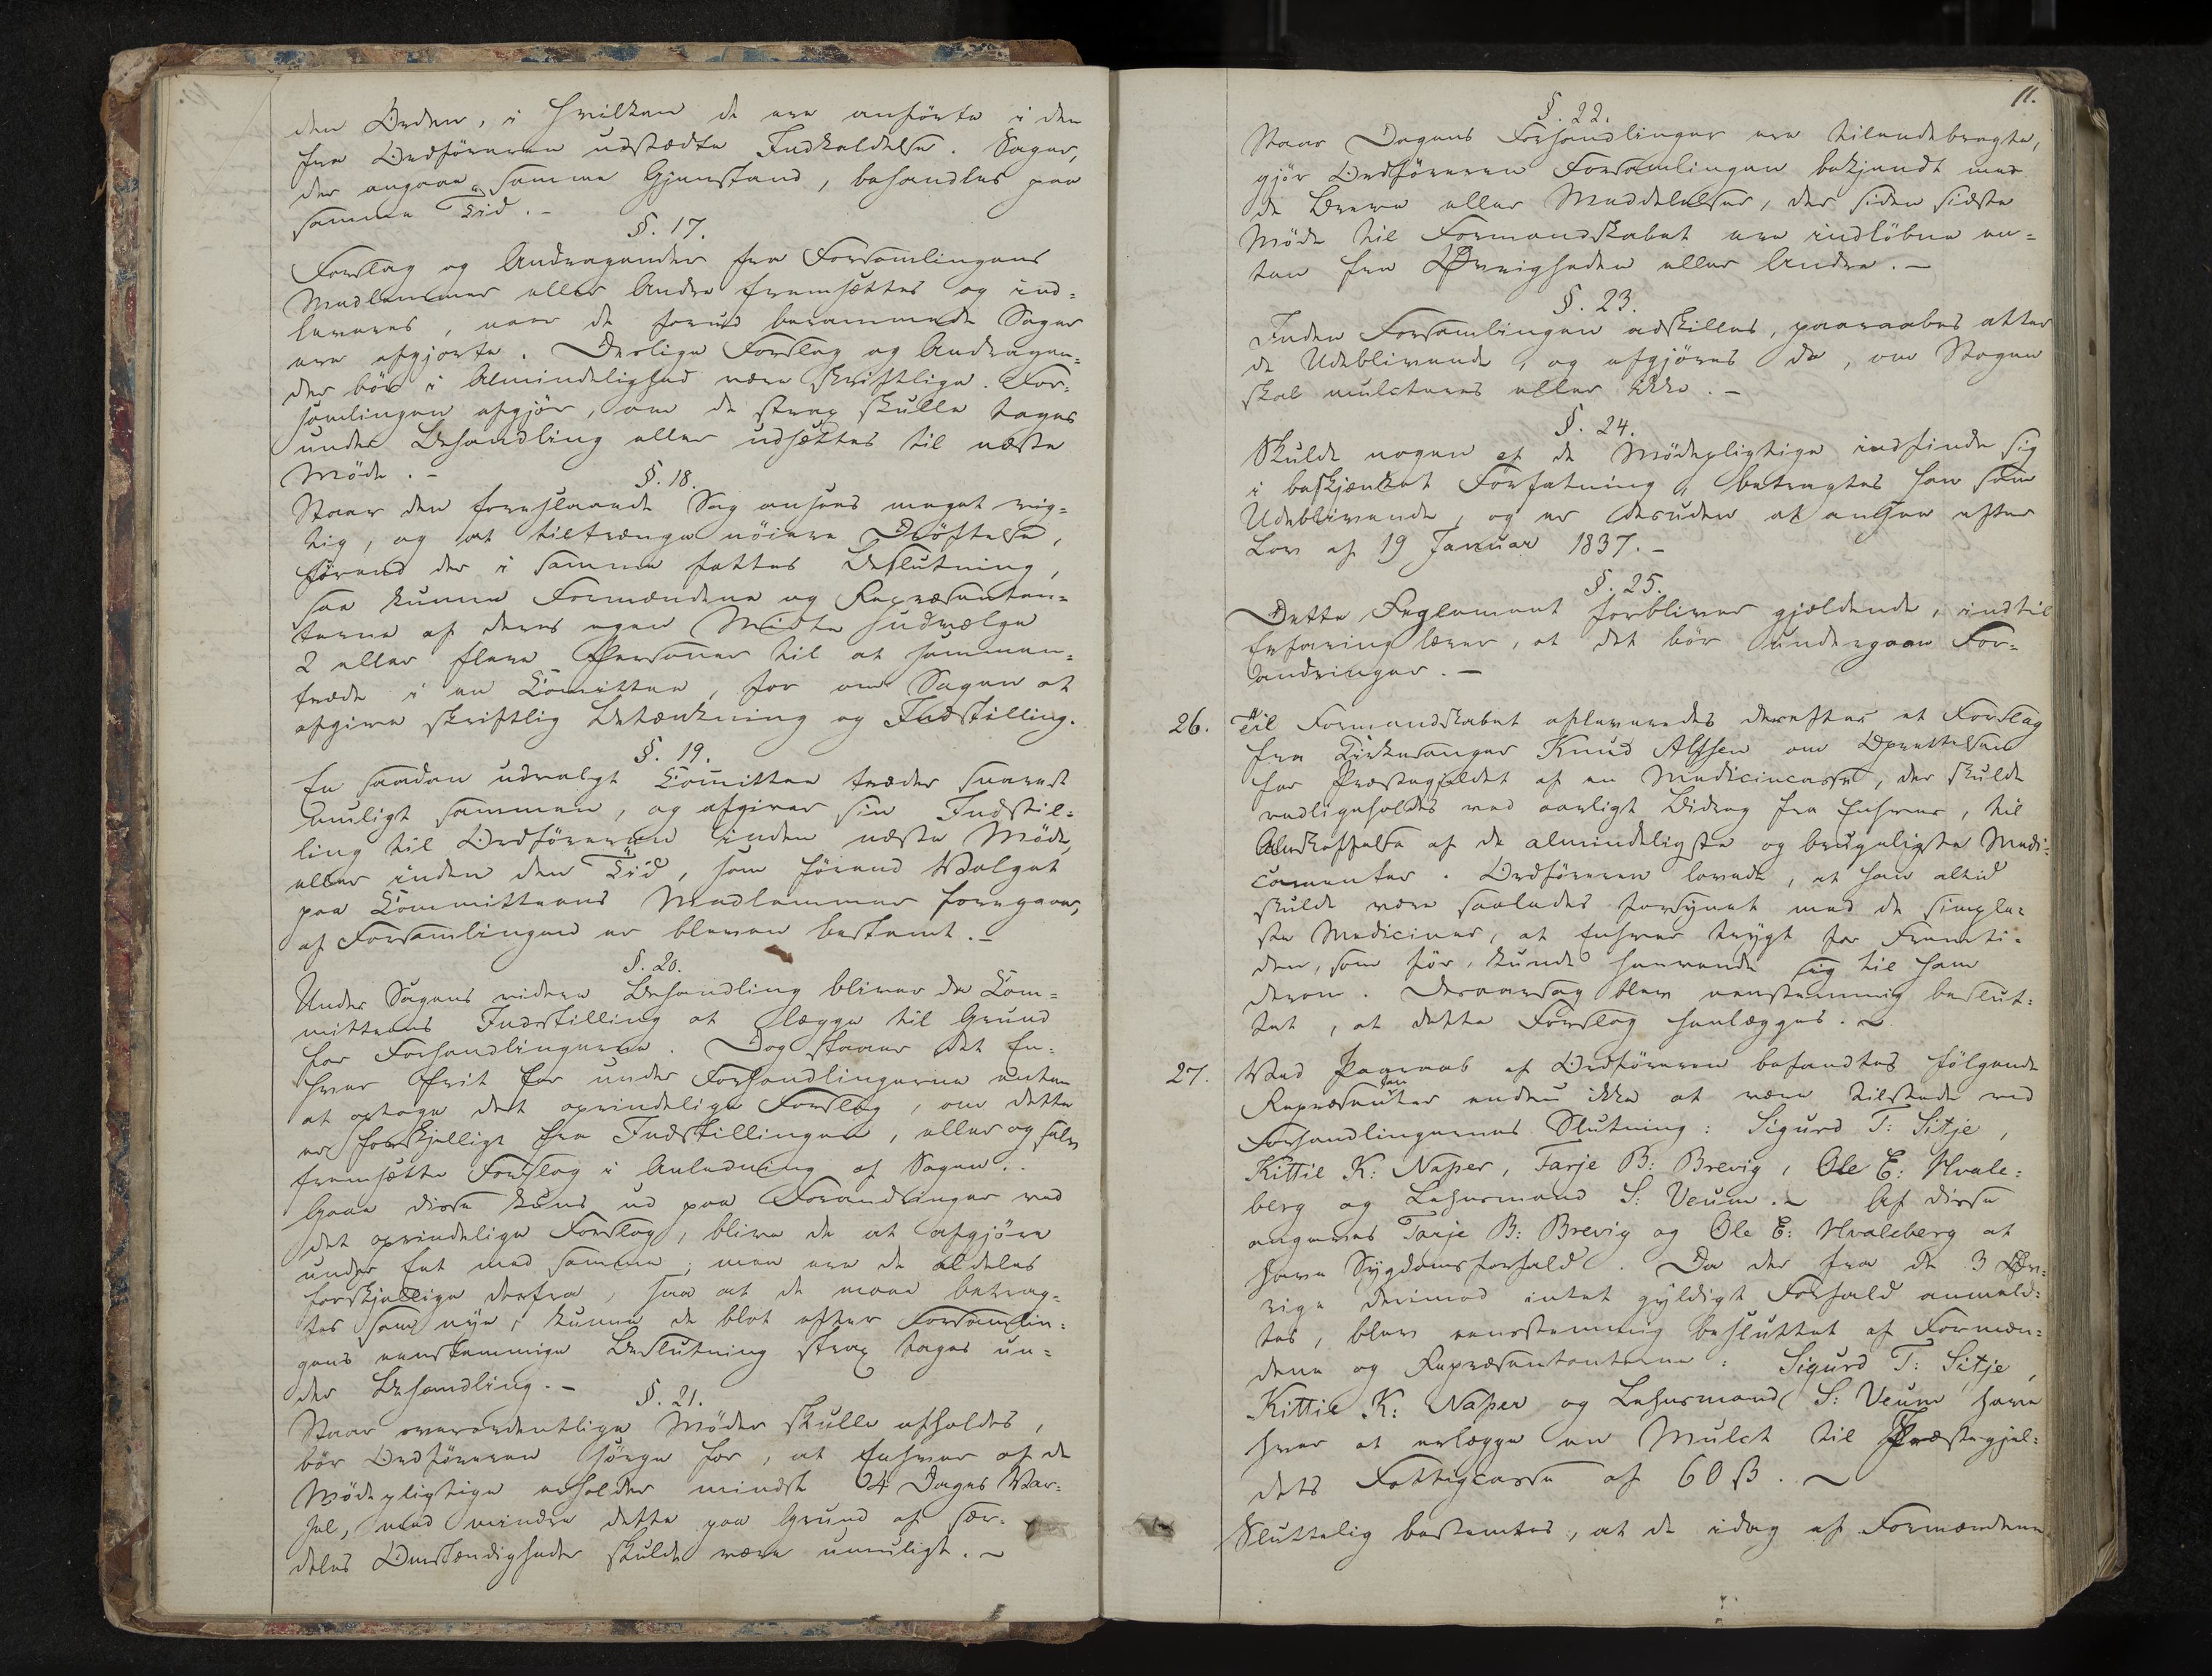 den Orden, i hvilken de ere anførte i den
fra Ordføreren udstædte Indkaldelse. Sager,
der angaae samme Gjenstand, behandles paa
samme Tid. -
§. 17.
Forslag og Andragender fra Forsamlingens
Medlemmer eller Andre fremsættes og ind=
leveres, naar de forud berammede Sager
ere afgjorte. Deslige Forslag og Andragen=
der bör i Almindelighed være skriftlige. For=
samlingen afgjör, om de strax skulle tages
under Behandling eller udsættes til næste
Möde. -
§. 18.
Naar den foreslaaede Sag ansees meget vig=
tig, og at tiltrænge nöiere Dröftelse,
förend der i samme fattes Beslutning,
saa kunne Formændene og Repræsentan=
terne af deres egen Midte udvælge
2 eller flere Personer til at sammen=
træde i en Comittee, for om Sagen at
afgive skriftlig Betænkning og Indstilling.
§. 19.
En saadan udvalgt Comittee træder snarest
muligt sammen, og afgiver sin Indstil=
ling til Ordföreren inden næste Möde,
eller inden den Tid, som förend Valget
paa Committeens Medlemmer foregaaer,
af Forsamlingen er bleven bestemt. -
§. 20.
Under Sagens videre Behandling bliver da Com=
mitteens Indstilling at lægge til Grund
for Forhandlingerne. Dog staaer det En=
hver frit for under Forhandlingerne enten
at optage det oprindelige Forslag, om dette
er forskjelligt fra Indstillingen, eller og selv
fremsætte Forslag i Anledning af Sagen. -
Gaae disse kuns ud paa Forandringer ved
det oprindelige Forslag, blive de at afgjöre
under Eet med samme; men ere de aldeles
forskjellige derfra, saa at de maae betrag=
tes som nye, kunne de blot efter Forsamlin=
gens eenstemmige Beslutning strax tages un=
der Behandling. -
§. 21.
Naar overordentlige Möder skulle afholdes,
bör Ordföreren sörge for, at Enhver af de
Mödepligtige erholder mindst 4 Dages Var=
sel, med mindre dette paa Grund af sær=
deles Omstændigheder skulde være umuligt. ~
11.
§. 22.
Naar Dagens Forhandlinger ere tilendebragte,
gjör Ordföreren Forsamlingen bekjendt med
de Breve eller Meddelelser, der siden sidste
Möde til Formandskabet ere indlöbne en=
ten fra Övrigheden eller Andre. -
§. 23.
Inden Forsamlingen adskilles, paaraabes atter
de Udeblivende, og afgjöres da, om Nogen
skal mulcteres eller ikke. -
§. 24.
Skulde nogen af de Mödepligtige indfinde sig
i beskjænket Forfatning, betragtes han som
Udeblivende, og er desuden at ansee efter
Lov af 19 Januar 1837. -
§. 25.
Dette Reglement forbliver gjældende, indtil
Erfaring lærer, at det bör undergaae For=
andringer. -
26. Til Formandskabet afleveredes derefter et Forslag
fra Kirkesanger Knud Alfsen om Oprettelsen
for Præstegjeldet af en Medicincasse, der skulde
vedligeholdes ved aarligt Bidrag fra Enhver, til
Anskaffelse af de almindeligste og brugeligste Medi=
camenter. Ordföreren lovede, at han altid
skulde være saaledes forsynet med de simple=
ste Mediciner, at Enhver trygt for Fremti=
den, som för, kunde henvende sig til ham
derom. Desaarsag blev eenstemmig beslut=
tet, at dette Forslag henlægges. ~
27. Ved Paaraab af Ordföreren befandtes fölgende
Repræsentanter endnu ikke at være tilstede ved
Forhandlingernes Slutning: Sigurd T: Sitje,
Kittil K: Naper, Tarje B: Brevig, Ole E: Hvale=
berg og Lehnsmand S: Veum. ~ Af disse
angaves Tarje B: Brevig og Ole E: Hvaleberg at
have Sygdomsforfald. Da der fra de 3 Öv=
rige derimod intet gyldigt Forfald anmeld=
tes, blev eenstemmig besluttet af Formæn=
dene og Repræsentanterne: Sigurd T: Sitje,
Kittil K: Naper og Lehnsmand S: Veum have
hver at erlægge en Mulct til Præstegjel=
dets Fattigcasse af 60 ß. ~
Sluttelig bestemtes, at de idag af Formændene